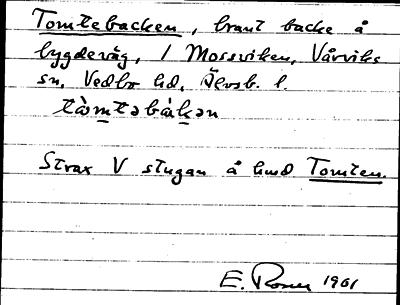 Tomtebacken, brant backe å
bygdeväg, i Mossviken, Vårviks
sn, Vedbo hd, Älvsb. l.
tòmtəbàkən
Strax V stugan å hmd Tomten.
E. Rosen 1901